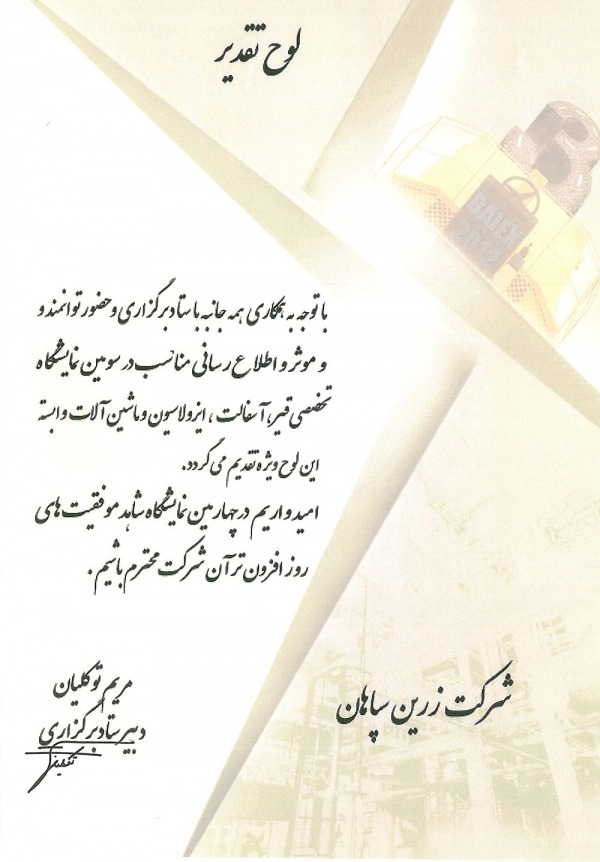 لوح تقدیر
BAIEX
2012
با توجه به همکاری همه جانبه با ستاد برگزاری و حضور توانمند و
و موثر و اطلاع رسانی مناسب در سومین نمایشگاه
تخصصی قیر، آسفالت ، ایزولاسیون و ماشین آلات وابسته
این لوح ویژه تقدیم می گردد.
امیدواریم در چهارمین نمایشگاه شاهد موفقیت های
روز افزون تر آن شرکت محترم باشیم .
شرکت زرین سپاهان
مریم توکلیان
دبیر ستاد برگزاری